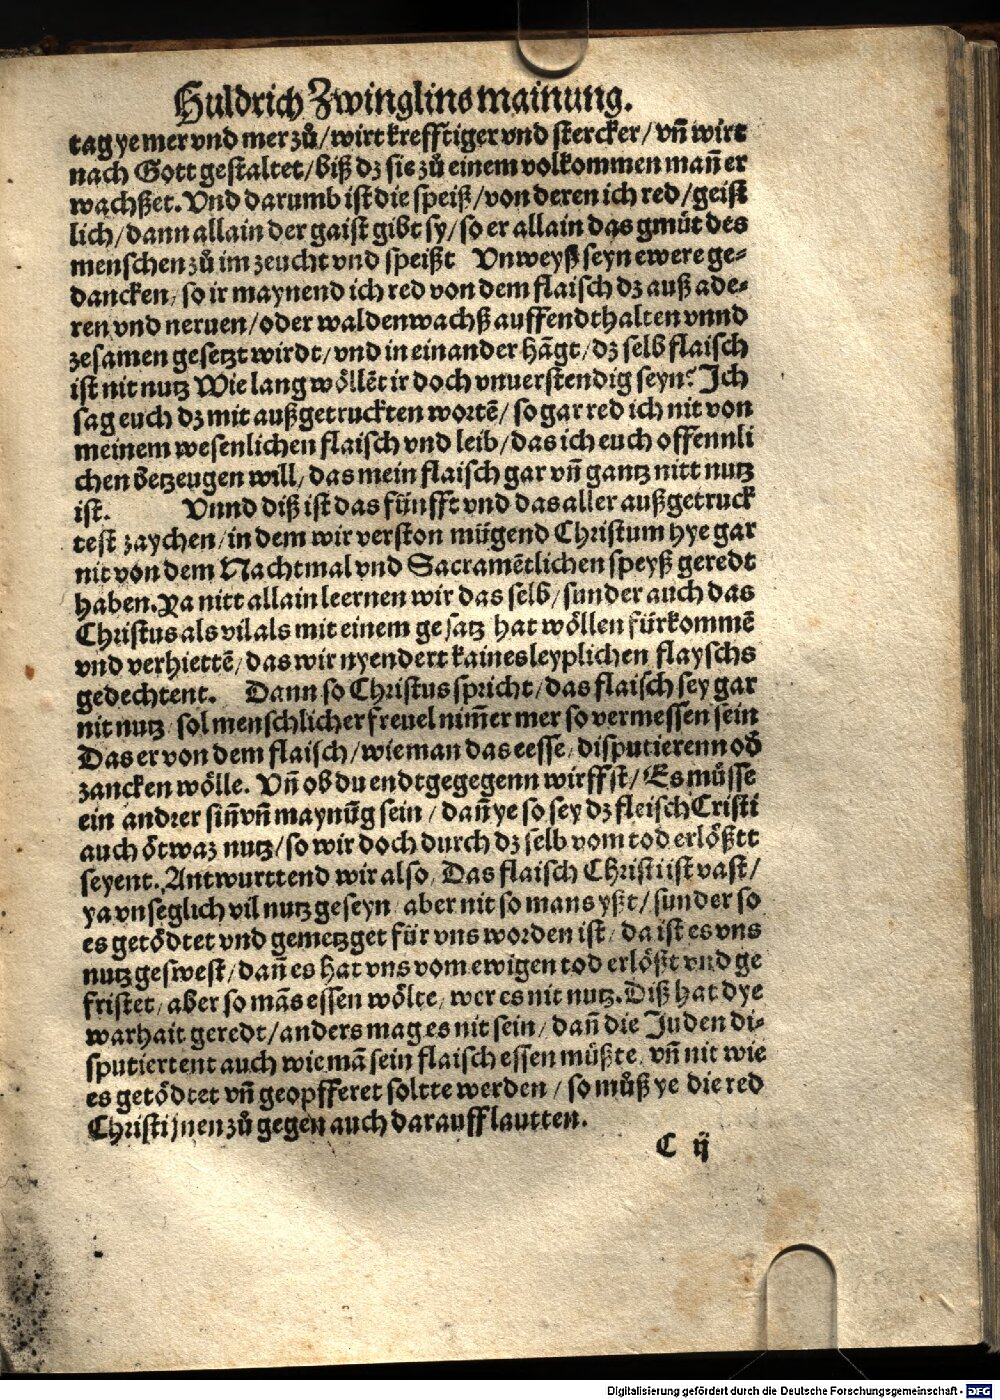 Huldrich Zwinglins mainung.
tag ye mer vnd mer zů/ wirt krefftiger vnd stercker/ vñ wirt
nach Gott gestaltet/ biß dz sie zů einem volkommen mañ er
wachßet. Vnd darumb ist die speiß/ von deren ich red/ geist
lich/ dann allain der gaist gibt sy/ so er allain das gmüt des
menschen zů im zeucht vnd speißt Vnweyß seyn ewere ge-
dancken/ so ir maynend ich red von dem flaisch dz auß ade-
ren vnd neruen/ oder waldenwachß auffendthalten vnnd
zesamen gesetzt wirdt/ vnd in einander hãgt/ dz selb flaisch
ist nit nutz Wie lang wöllẽt ir doch vnuerstendig seyn? Ich
sag euch dz mit außgetruckten wortẽ/ so gar red ich nit von
meinem wesenlichen flaisch vnd leib/ das ich euch offennli
chen betzeugen will/ das mein flaisch gar vñ gantz nitt nutz
ist. Vnnd diß ist das fünfft vnd das aller außgetruck
test zaychen/ in dem wir verston mügend Christum hye gar
nit von dem Nachtmal vnd Sacramẽtlichen speyß geredt
haben. Ya nitt allain leernen wir das selb/ sunder auch das
Christus als vil als mit einem gesatz hat wöllen fürkommẽ
vnd verhiettẽ/ das wir nyendert kaines leyplichen flayschs
gedechtent. Dann so Christus spricht/ das flaisch sey gar
nit nutz/ sol menschlicher freuel nim̃er mer so vermessen sein
Das er von dem flaisch/ wie man das eesse/ disputierenn oď
zancken wölle. Vñ ob du endtgegegenn wirffst/ Es müsse
ein andrer siñ vñ maynũg sein/ dañ ye so sey dz fleisch Cristi
auch ötwaz nutz/ so wir doch durch dz selb vom tod erlößtt
seyent. Antwurttend wir also/ Das flaisch Christi ist vast/
ya vnseglich vil nutz geseyn/ aber nit so mans yßt/ sunder so
es getödtet vnd gemetzget für vns worden ist/ da ist es vns
nutz geswest/ dañ es hat vns vom ewigen tod erlößt vnd ge
fristet/ aber so mãs essen wölte/ wer es nit nutz. Diß hat dye
warhait geredt/ anders mag es nit sein/ dañ die Juden di-
sputiertent auch wie mã sein flaisch essen müßte/ vñ nit wie
es getödtet vñ geopfferet soltte werden/ so můß ye die red
Christi jnen zů gegen auch darauff lautten.
C ij
Digitalisierung gefördert durch die Deutsche Forschungsgemeinschaft - DFG